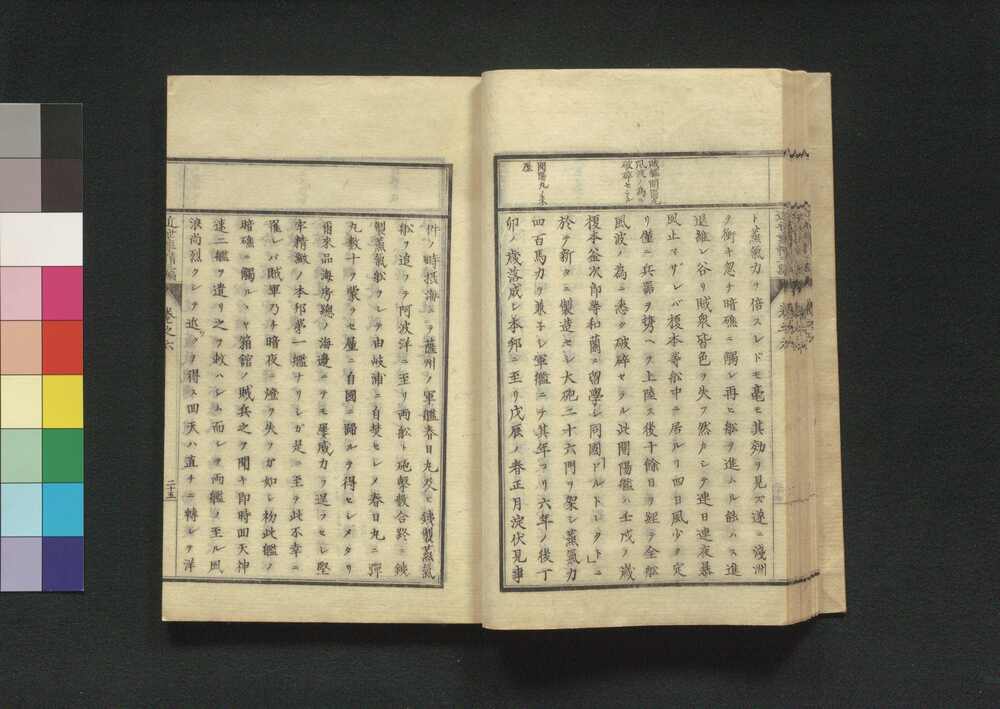 賊艦開陽丸
風波ノ為メ
破碎セラル
開陽丸ノ来
歴
ト蒸氣力ヲ倍スレドモ毫モ其効ヲ見ズ遂ニ淺洲
ヲ衝キ忽チ暗礁ニ觸レ再ヒ舩ヲ進ムル能ハス進
退維レ谷リ賊衆皆色ヲ失フ然カシテ連日連夜暴
風止マザレバ榎本等舩中ニ居ル四日風少ク定
リ僅ニ兵器ヲ携ヘテ上陸ス後十餘日ヲ經テ全舩
風波ノ為ニ悉ク破碎セラル此開陽艦ハ壬戌ノ歳
榎本釜次郎等和蘭ニ留學シ同國「ドルトレクト」ニ
於テ新タニ製造セシ大砲二十六門ヲ架シ蒸氣力
四百馬力ヲ兼子シ軍艦ニテ其年ヨリ六年ノ後丁
卯ノ歳落成シ本邦ニ至リ戊辰ノ春正月淀伏見事
件ノ時摂海ニテ薩州ノ軍艦春日丸及ヒ銕製蒸氣
舩ヲ追フテ阿波洋ニ至リ両舩ト砲撃数合終ニ銕
製蒸氣舩ヲシテ由岐浦ニ自焚セシメ春日丸ニ彈
丸数十ヲ蒙ラセ僅ニ自國ニ歸ルヲ得セシメタリ
爾來品海房總ノ海邊ニテモ屢威力ヲ逞フセシ堅
牢精緻ノ本邦第一艦ナリシガ是ニ至テ此不幸ニ
罹レバ賊軍乃チ暗夜ニ燈ヲ失フガ如シ扨此艦ノ
暗礁ニ觸ルヽヤ箱舘ノ賊兵之ヲ聞キ即時回天神
速二艦ヲ遣リ之ヲ救ハシム而シテ両艦ノ至ル風
浪尚烈クシテ近ツクヲ得ス回天ハ直チニ轉シテ洋
卷之六
二十五